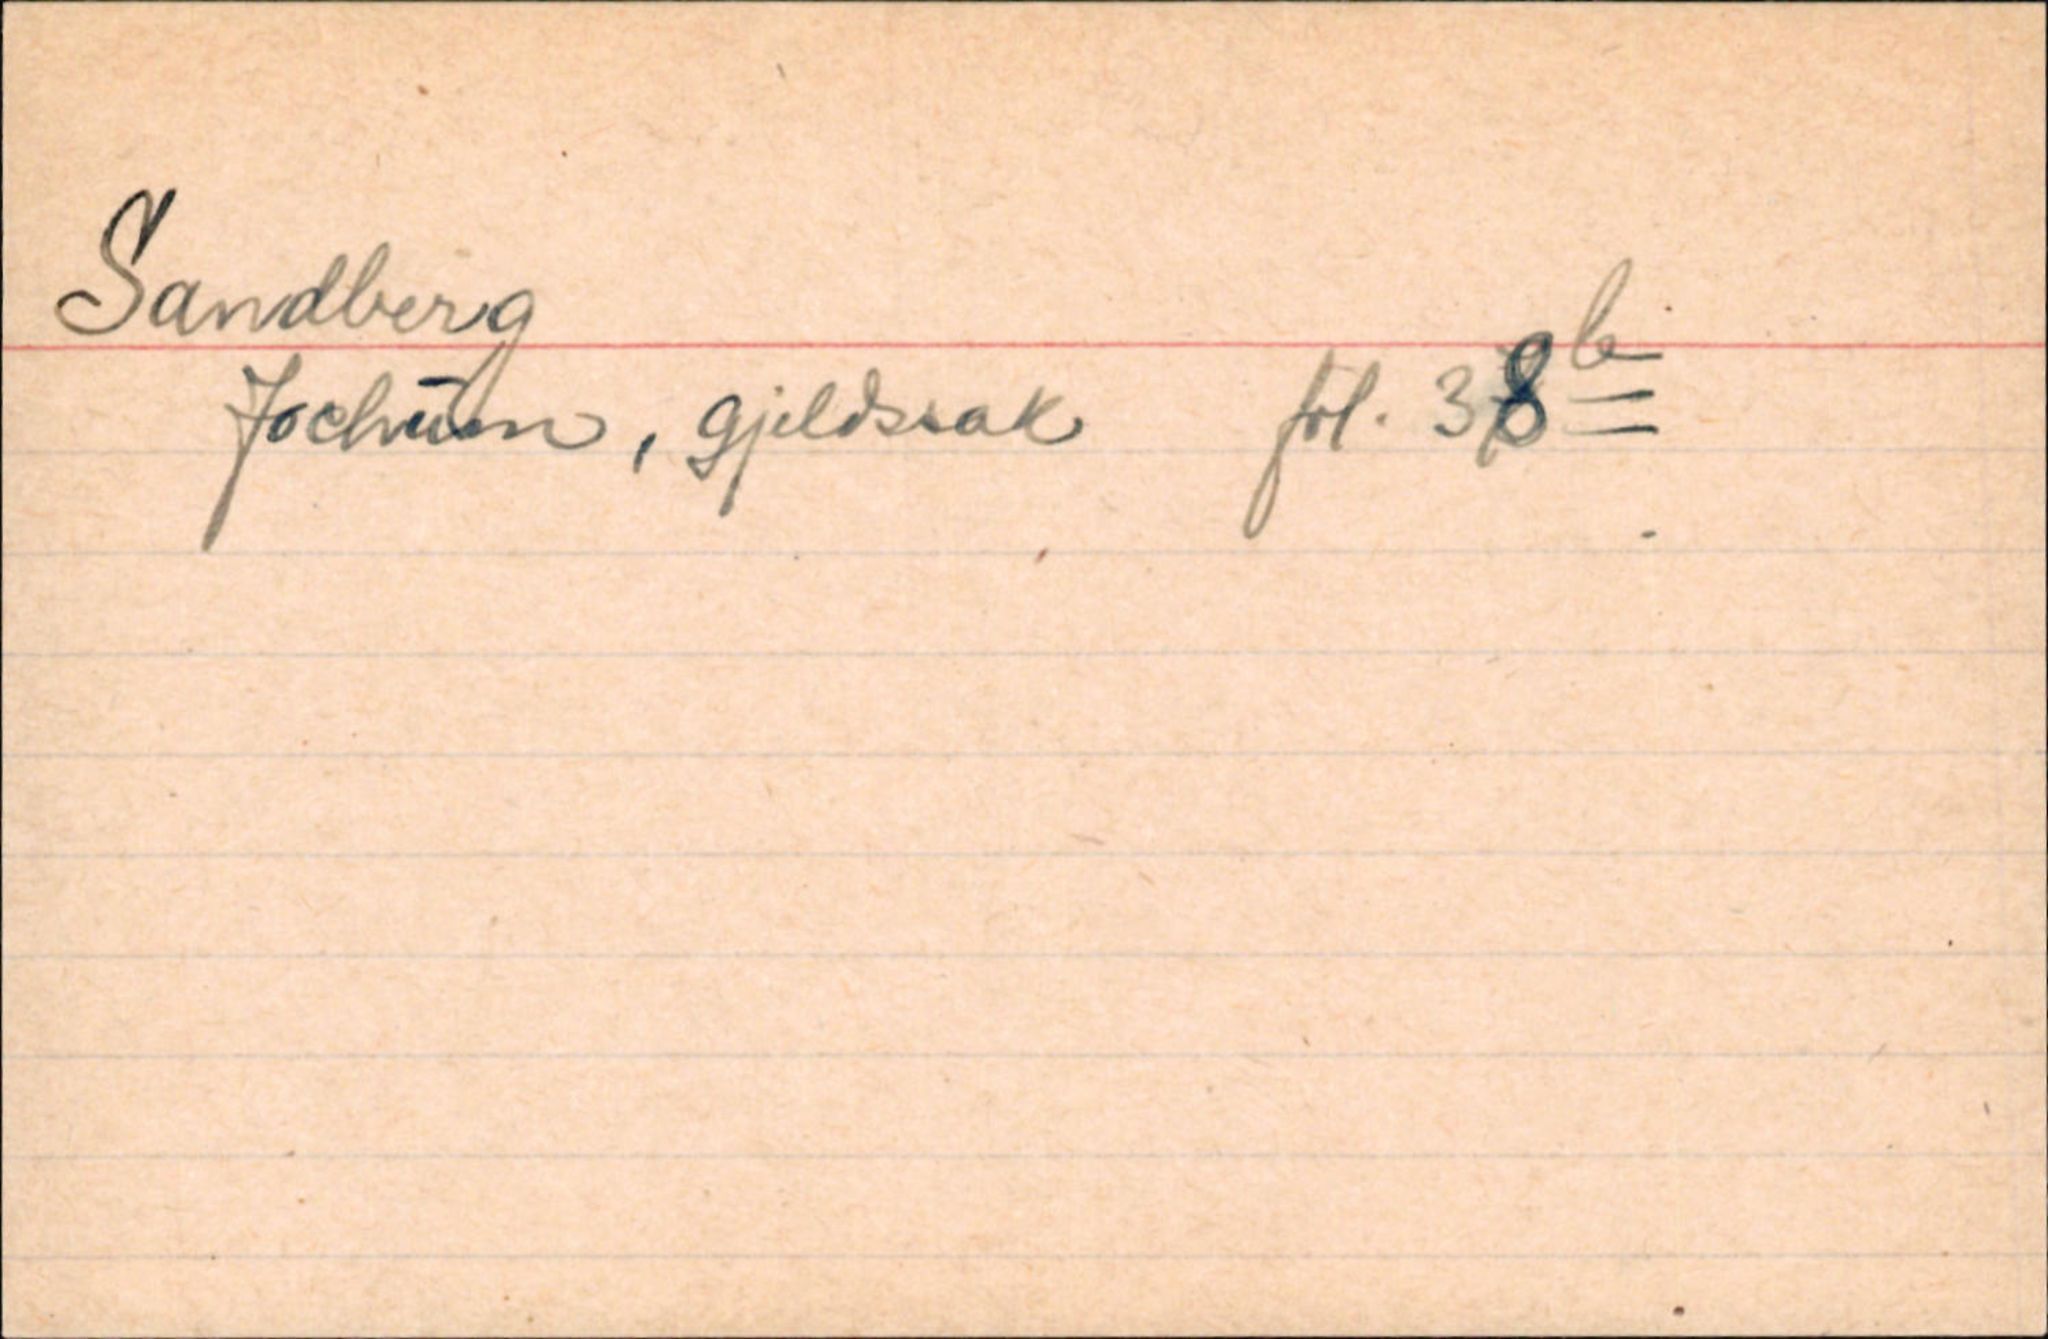 Sandberg
Jochum, gjeldssak fol. 38b